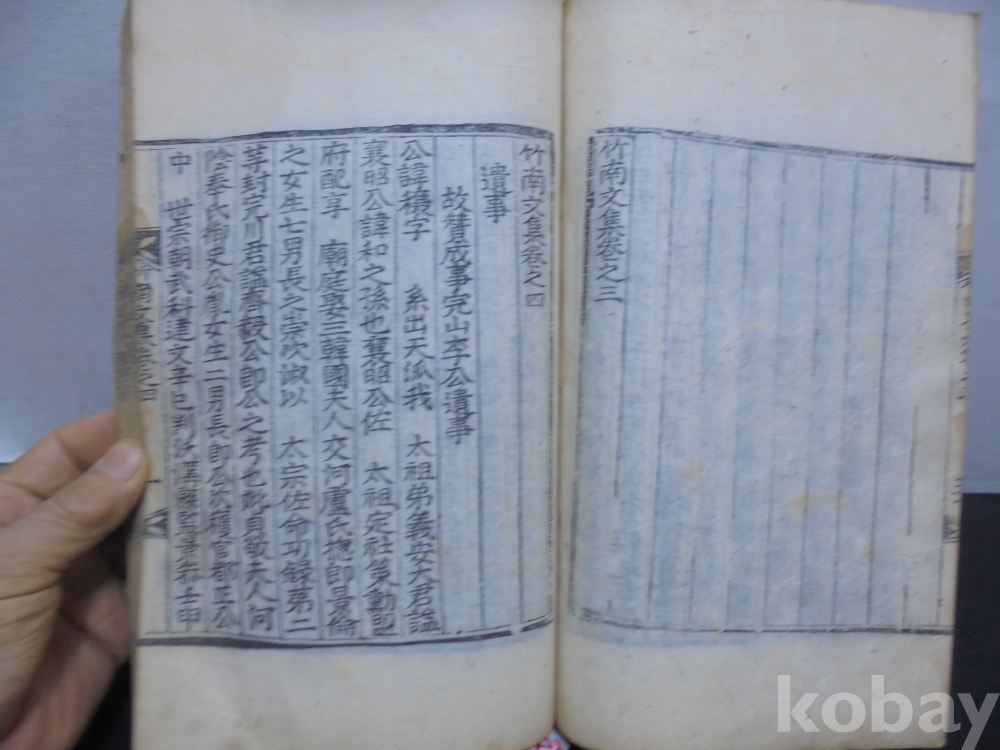 竹南文集卷之三
竹南文集卷之四
遺事
故贊成事完山李公遺事
公諱穰字 系出天派我 太祖弟義安大君諡
襄昭公諱和之孫也襄昭公佐 太祖定社策勳
府配享 廟庭娶三韓國夫人交河盧氏摠郎景倫
之女生七男長之崇次淑以 太宗佐命功錄第二
等封完川君諡齊毅公即公之考也妣貞敬夫人河
陰奉氏御史公胤女生二男長即公次穜官都正公
中 世宗朝武科達文辛巳判漢
kobay